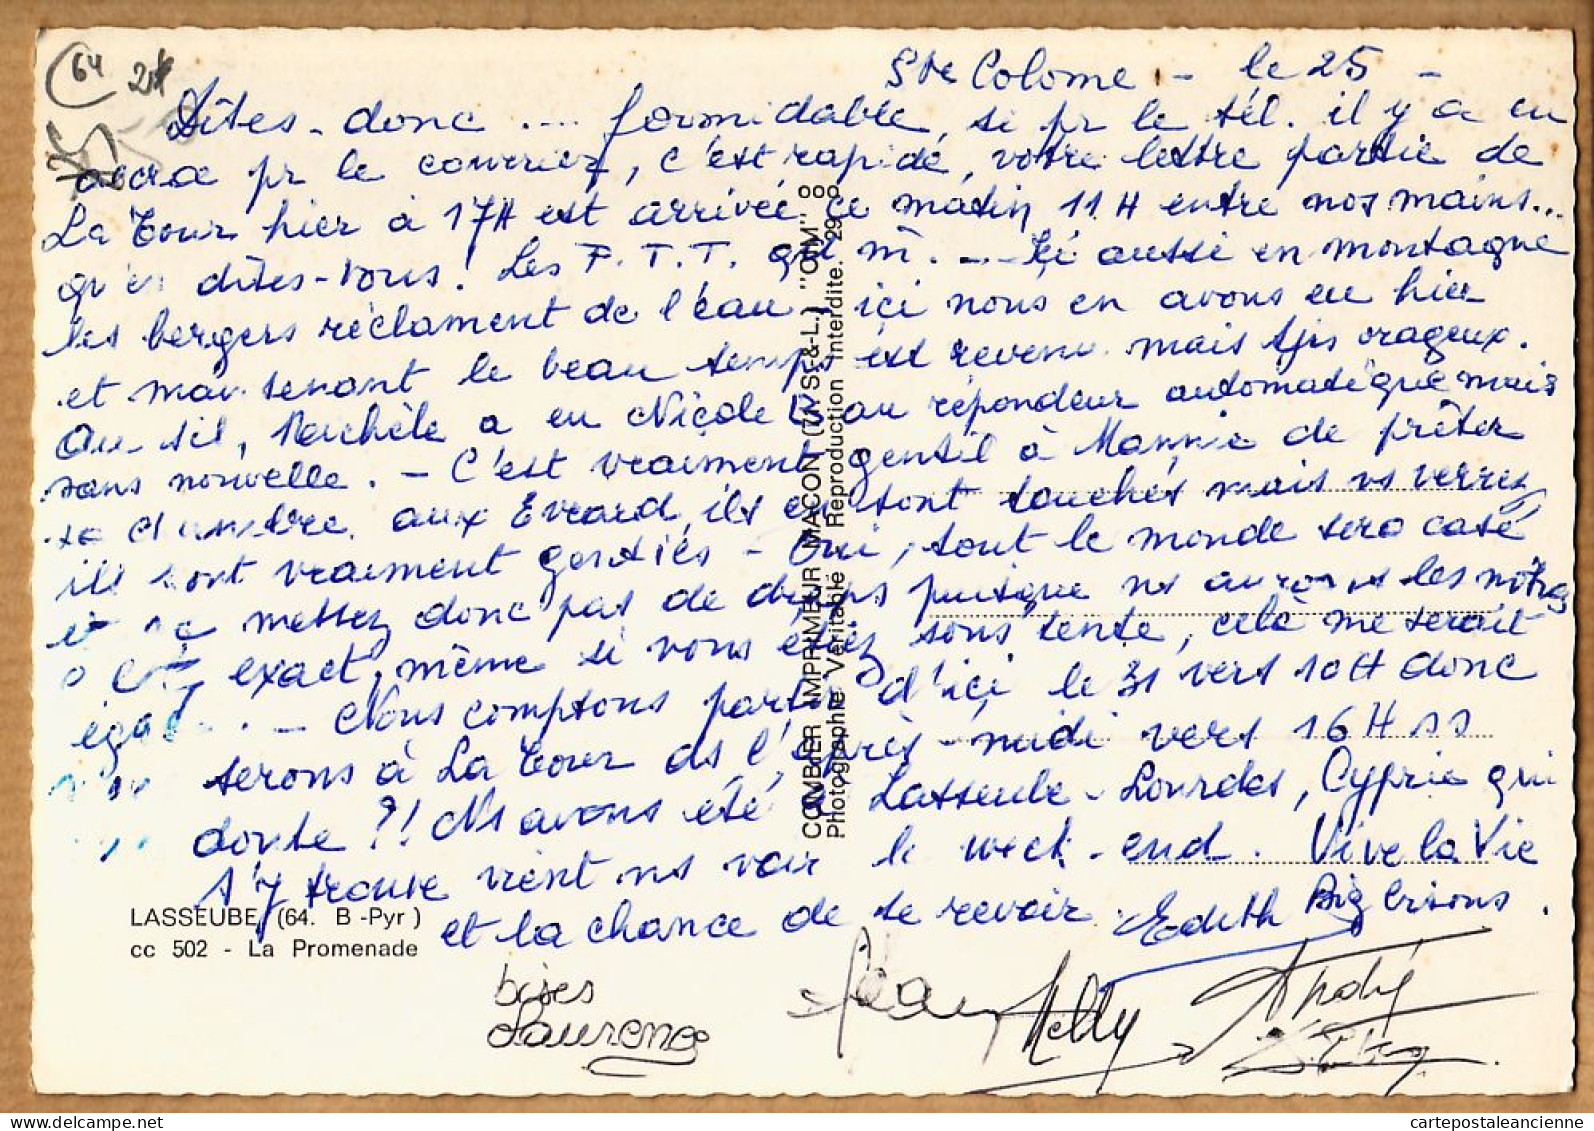 64
Ste Colome - le 25 -
Dîtes-donc .... formidable, si pr le tél. il y a eu
accroc pr le courrier, c'est rapide, votre lettre partie de
La Tour hier à 17H est arrivée ce matin 11H entre nos mains...
qu'en dîtes-vous! Les P.T.T. ... Ici aussi en montagne
les bergers réclament de l'eau, ici nous en avons eu hier
et maintenant le beau temps est revenu mais tjrs orageux.
Au tél, Rachèle a eu Nicole au répondeur automatique mais
sans nouvelle. - C'est vraiment gentil à Mannie de prêter
sa chambre aux Evrard, ils en sont touchés mais vs verrez
ils sont vraiment gentils - Oui, tout le monde sera casé
et ne mettez donc pas de draps puisque ns aurons les nôtres
exact, même si vous étiez sous tente, celà me serait
égal. - Nous comptons partir d'ici le 31 vers 10H donc
serons à La Tour ds l'après-midi vers 16H ss
doute ?! Ns avons été à Lasseube - Lourdes, Cyprie qui
s'y trouve vient ns voir le week-end. Vive la Vie
et la chance de se revoir. Edith Big bisous.
LASSEUBE (64. B-Pyr)
cc 502 - La Promenade
bises
Laurence
Jean
Nelly
André
COMBIER IMPRIMEUR MACON (71/S.-&-L.) "CIM"
Photographie Véritable Reproduction Interdite. 29
cartepostaleancienne